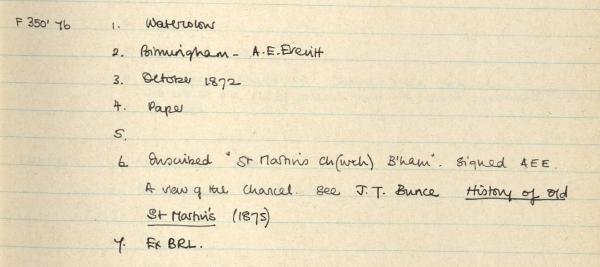 F 350' 76 1. Watercolour
2. Birmingham - A.E. Everitt
3. October 1872
4. Paper
5.
6. Inscribed "St Martin's Ch(urch) B'ham". Signed AEE.
A view of the chancel. See J.T. Bunce History of Old
St Martin's (1875)
7. Ex BRL.